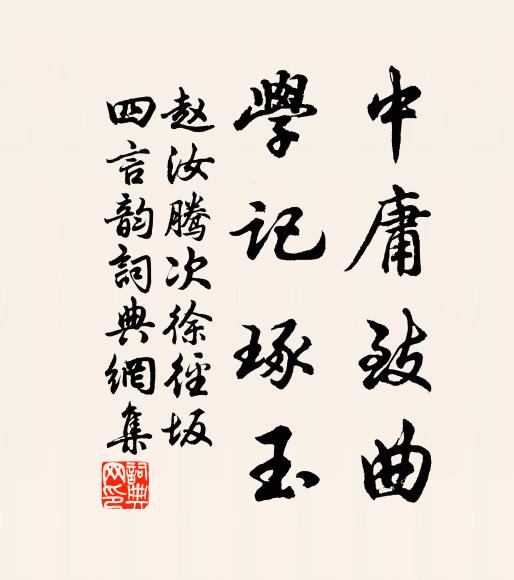 中庸致曲
學记琢玉
赵汝腾次徐径坂
四言韵詞典網集
詞典网印